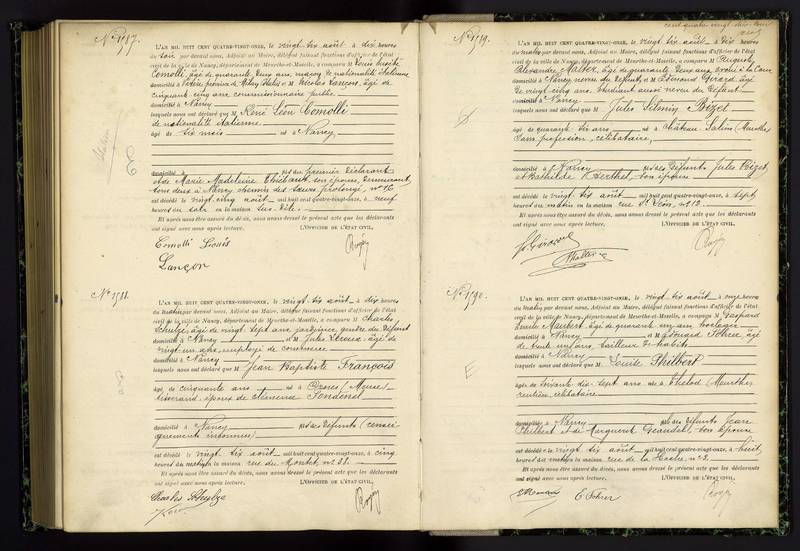 N° 1587.
L'AN MIL HUIT CENT QUATRE-VINGT-ONZE, le vingt six août à dix heures
du soir par devant nous, Adjoint au Maire, délégué faisant fonctions d'officier de l'état
civil de la ville de Nancy, département de Meurthe-et-Moselle, a comparu M Louis
Comolli, âgé de quarante deux ans, maçon, de nationalité italienne
domicilié à et M Nicolas Lançon, âgé de
cinquante cinq ans commissionnaire public
domicilié à Nancy
lesquels nous ont déclaré que M René Léon Comolli
de nationalité italienne
âgé de six mois né à Nancy
domicilié à fils du premier déclarant
et de Marie Madeleine Thiébaut, son épouse, demeurant
tous deux à Nancy chemin des Sœurs, prolongé, n° 16
est décédé le vingt cinq août mil huit cent quatre-vingt-onze, à neuf
heures du soir en la maison sus-dite.
Et après nous être assuré du décès, nous avons dressé le présent acte que les déclarants
ont signé avec nous après lecture. L'OFFICIER DE L'ÉTAT CIVIL,
Comolli Louis
Lançon
N° 1588.
L'AN MIL HUIT CENT QUATRE-VINGT-ONZE, le vingt six août à dix heures
du matin par devant nous, Adjoint au Maire, délégué faisant fonctions d'officier de l'état
civil de la ville de Nancy, département de Meurthe-et-Moselle, a comparu M Charles
âgé de vingt sept ans jardinier, gendre du défunt
domicilié à Nancy et M Jules Leroux, âgé de
vingt un ans, employé de commerce
domicilié à Nancy
lesquels nous ont déclaré que M Jean Baptiste François
âgé de cinquante ans né à (Meuse)
tisserand, époux de Clémence
domicilié à Nancy fils des défunts (renseignements inconnus)
est décédé le vingt six août mil huit cent quatre-vingt-onze, à cinq
heures du matin en la maison rue du Montet, n° 28.
Et après nous être assuré du décès, nous avons dressé le présent acte que les déclarants
ont signé avec nous après lecture. L'OFFICIER DE L'ÉTAT CIVIL,
Charles
cent quatre vingt dix
N° 1589.
L'AN MIL HUIT CENT QUATRE-VINGT-ONZE, le vingt six août à dix heures
du matin par devant nous, Adjoint au Maire, délégué faisant fonctions d'officier de l'état
civil de la ville de Nancy, département de Meurthe-et-Moselle, a comparu M Auguste
Alexandre âgé de quarante deux ans avoué à la Cour
domicilié à Nancy neveu du défunt, et M Edmond Girard âgé
de vingt cinq ans étudiant aussi neveu du défunt
domicilié à Nancy
lesquels nous ont déclaré que M Jules Bizet
âgé de quarante six ans né à Château Salins (Meurthe)
sans profession, célibataire,
domicilié à Nancy fils des défunts Jules Bizet
et Mathilde Berthel, son épouse
est décédé le vingt six août mil huit cent quatre-vingt-onze, à sept
heures du matin en la maison rue St Léon, n° 12.
Et après nous être assuré du décès, nous avons dressé le présent acte que les déclarants
ont signé avec nous après lecture. L'OFFICIER DE L'ÉTAT CIVIL,
N° 1590.
L'AN MIL HUIT CENT QUATRE-VINGT-ONZE, le vingt six août à onze heures
du matin par devant nous, Adjoint au Maire, délégué faisant fonctions d'officier de l'état
civil de la ville de Nancy, département de Meurthe-et-Moselle, a comparu M Gaspard
Emile âgé de quarante un ans horloger
domicilié à Nancy et M Edouard âgé
de trente un ans, tailleur d'habits
domicilié à Nancy
lesquels nous ont déclaré que M Louise Philbert
âgée de soixante dix sept ans née à Thelod (Meurthe)
rentière, célibataire
domiciliée à Nancy fille des défunts Jean
Philbert et de Marguerite Grandel, son épouse
est décédée le vingt six août mil huit cent quatre-vingt-onze, à huit
heures du matin en la maison rue de la n° 3.
Et après nous être assuré du décès, nous avons dressé le présent acte que les déclarants
ont signé avec nous après lecture. L'OFFICIER DE L'ÉTAT CIVIL,